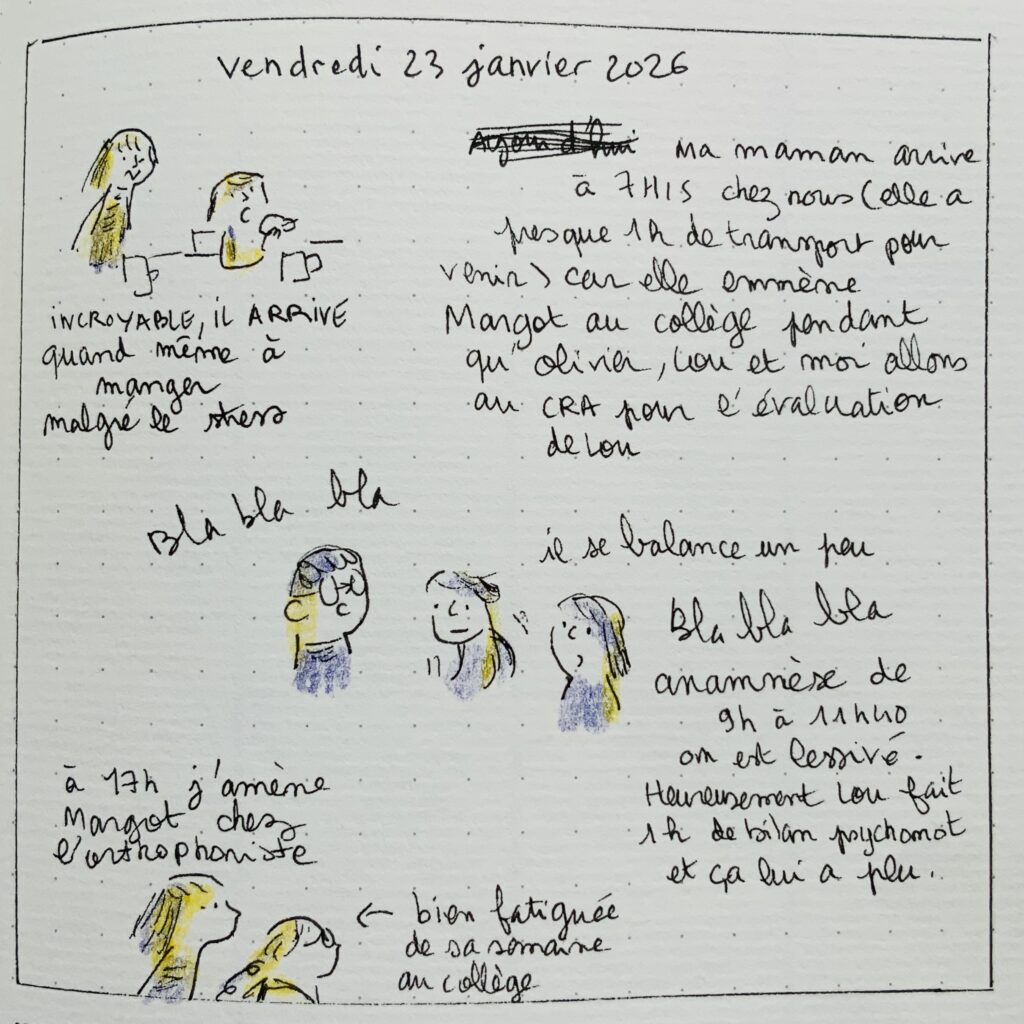 vendredi 23 janvier 2026
Ma maman arrive
à 7H15 chez nous (elle a
presque 1h de transport pour
venir) car elle emmène
Margot au collège pendant
qu'olivier, Lou et moi allons
au CRA pour l'évaluation
de Lou
INCROYABLE, iL ARRIVE
quand même à
manger
malgré le stress
Bla bla bla
il se balance un peu
Bla bla bla
anamnèse de
9h à 11h40
on est lessivé.
Heureusement Lou fait
1h de bilan psychomot
et ça lui a plu.
à 17h j'amène
Margot chez
l'orthophoniste
← bien fatiguée
de sa semaine
au collège